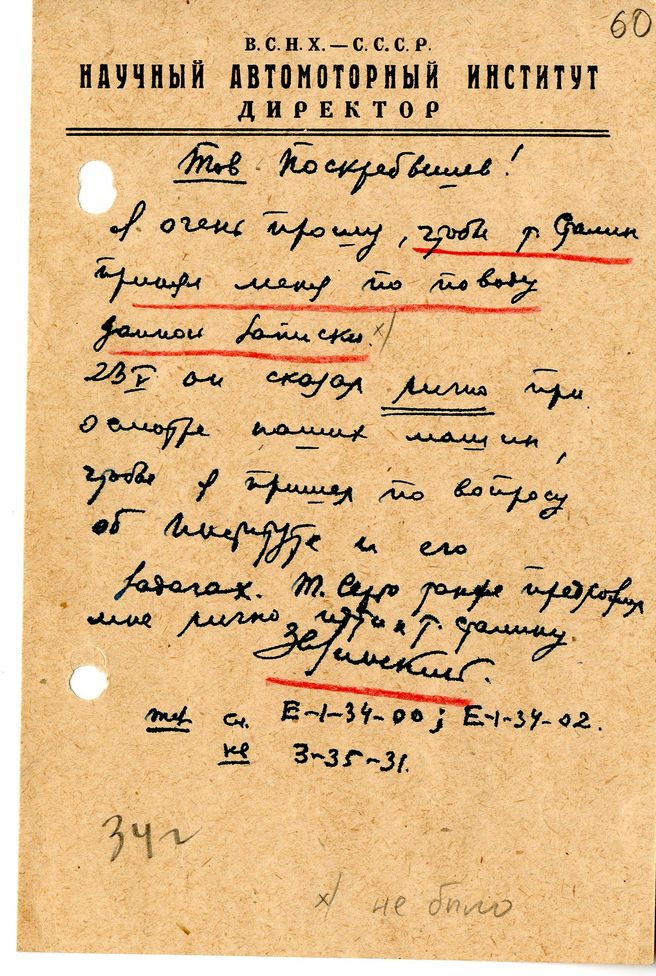 60
В.С.Н.Х.—С.С.С.Р.
НАУЧНЫЙ АВТОМОТОРНЫЙ ИНСТИТУТ
ДИРЕКТОР
Тов Поскребышев!
Я очень прошу, чтобы т. Сталин
принял меня по поводу
данной записки. х/
23/V он сказал лично при
осмотре наших машин,
чтобы я пришел по вопросу
об Институте и его
задачах. Т. Серго также предложил
мне лично идти к т. Сталину.
тел сл. Е-1-34-00; Е-1-34-02.
кв 3-35-31.
34 г
х/ не было